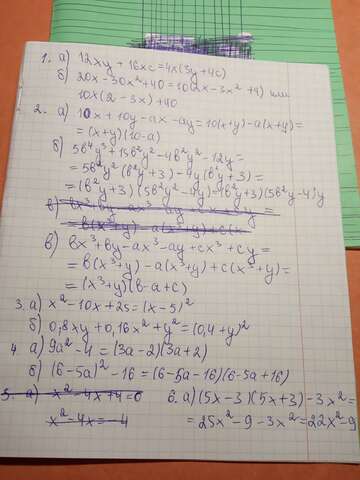 1. а) 12xy + 16xc = 4x(3y+4c)
б) 20x - 30x² + 40 = 10(2x - 3x² + 4) или
10x(2 - 3x) + 40
2. а) 10x + 10y - ax - ay = 10(x+y) - a(x+y) =
= (x+y)(10-a)
б) 5b⁴y³ + 15b²y² - 4b²y² - 12y =
= 5b²y²(b²y+3) - 4y(b²y+3) =
= (b²y+3)(5b²y² - 4y) = (b²y+3)(5b²y - 4)y
в)
= b(x³+y) - a(x³+y) + c(x
в) bx³ + by - ax³ - ay + cx³ + cy =
= b(x³+y) - a(x³+y) + c(x³+y) =
= (x³+y)(b-a+c)
3. а) x² - 10x + 25 = (x-5)²
б) 0,8xy + 0,16x² + y² = (0,4+y)²
4. а) 9a² - 4 = (3a-2)(3a+2)
б) (6-5a)² - 16 = (6-5a-16)(6-5a+16)
5. а) x² - 4x + 4 = 0 6. а) (5x-3)(5x+3) - 3x² =
x² - 4x = -4 = 25x² - 9 - 3x² = 22x² - 9